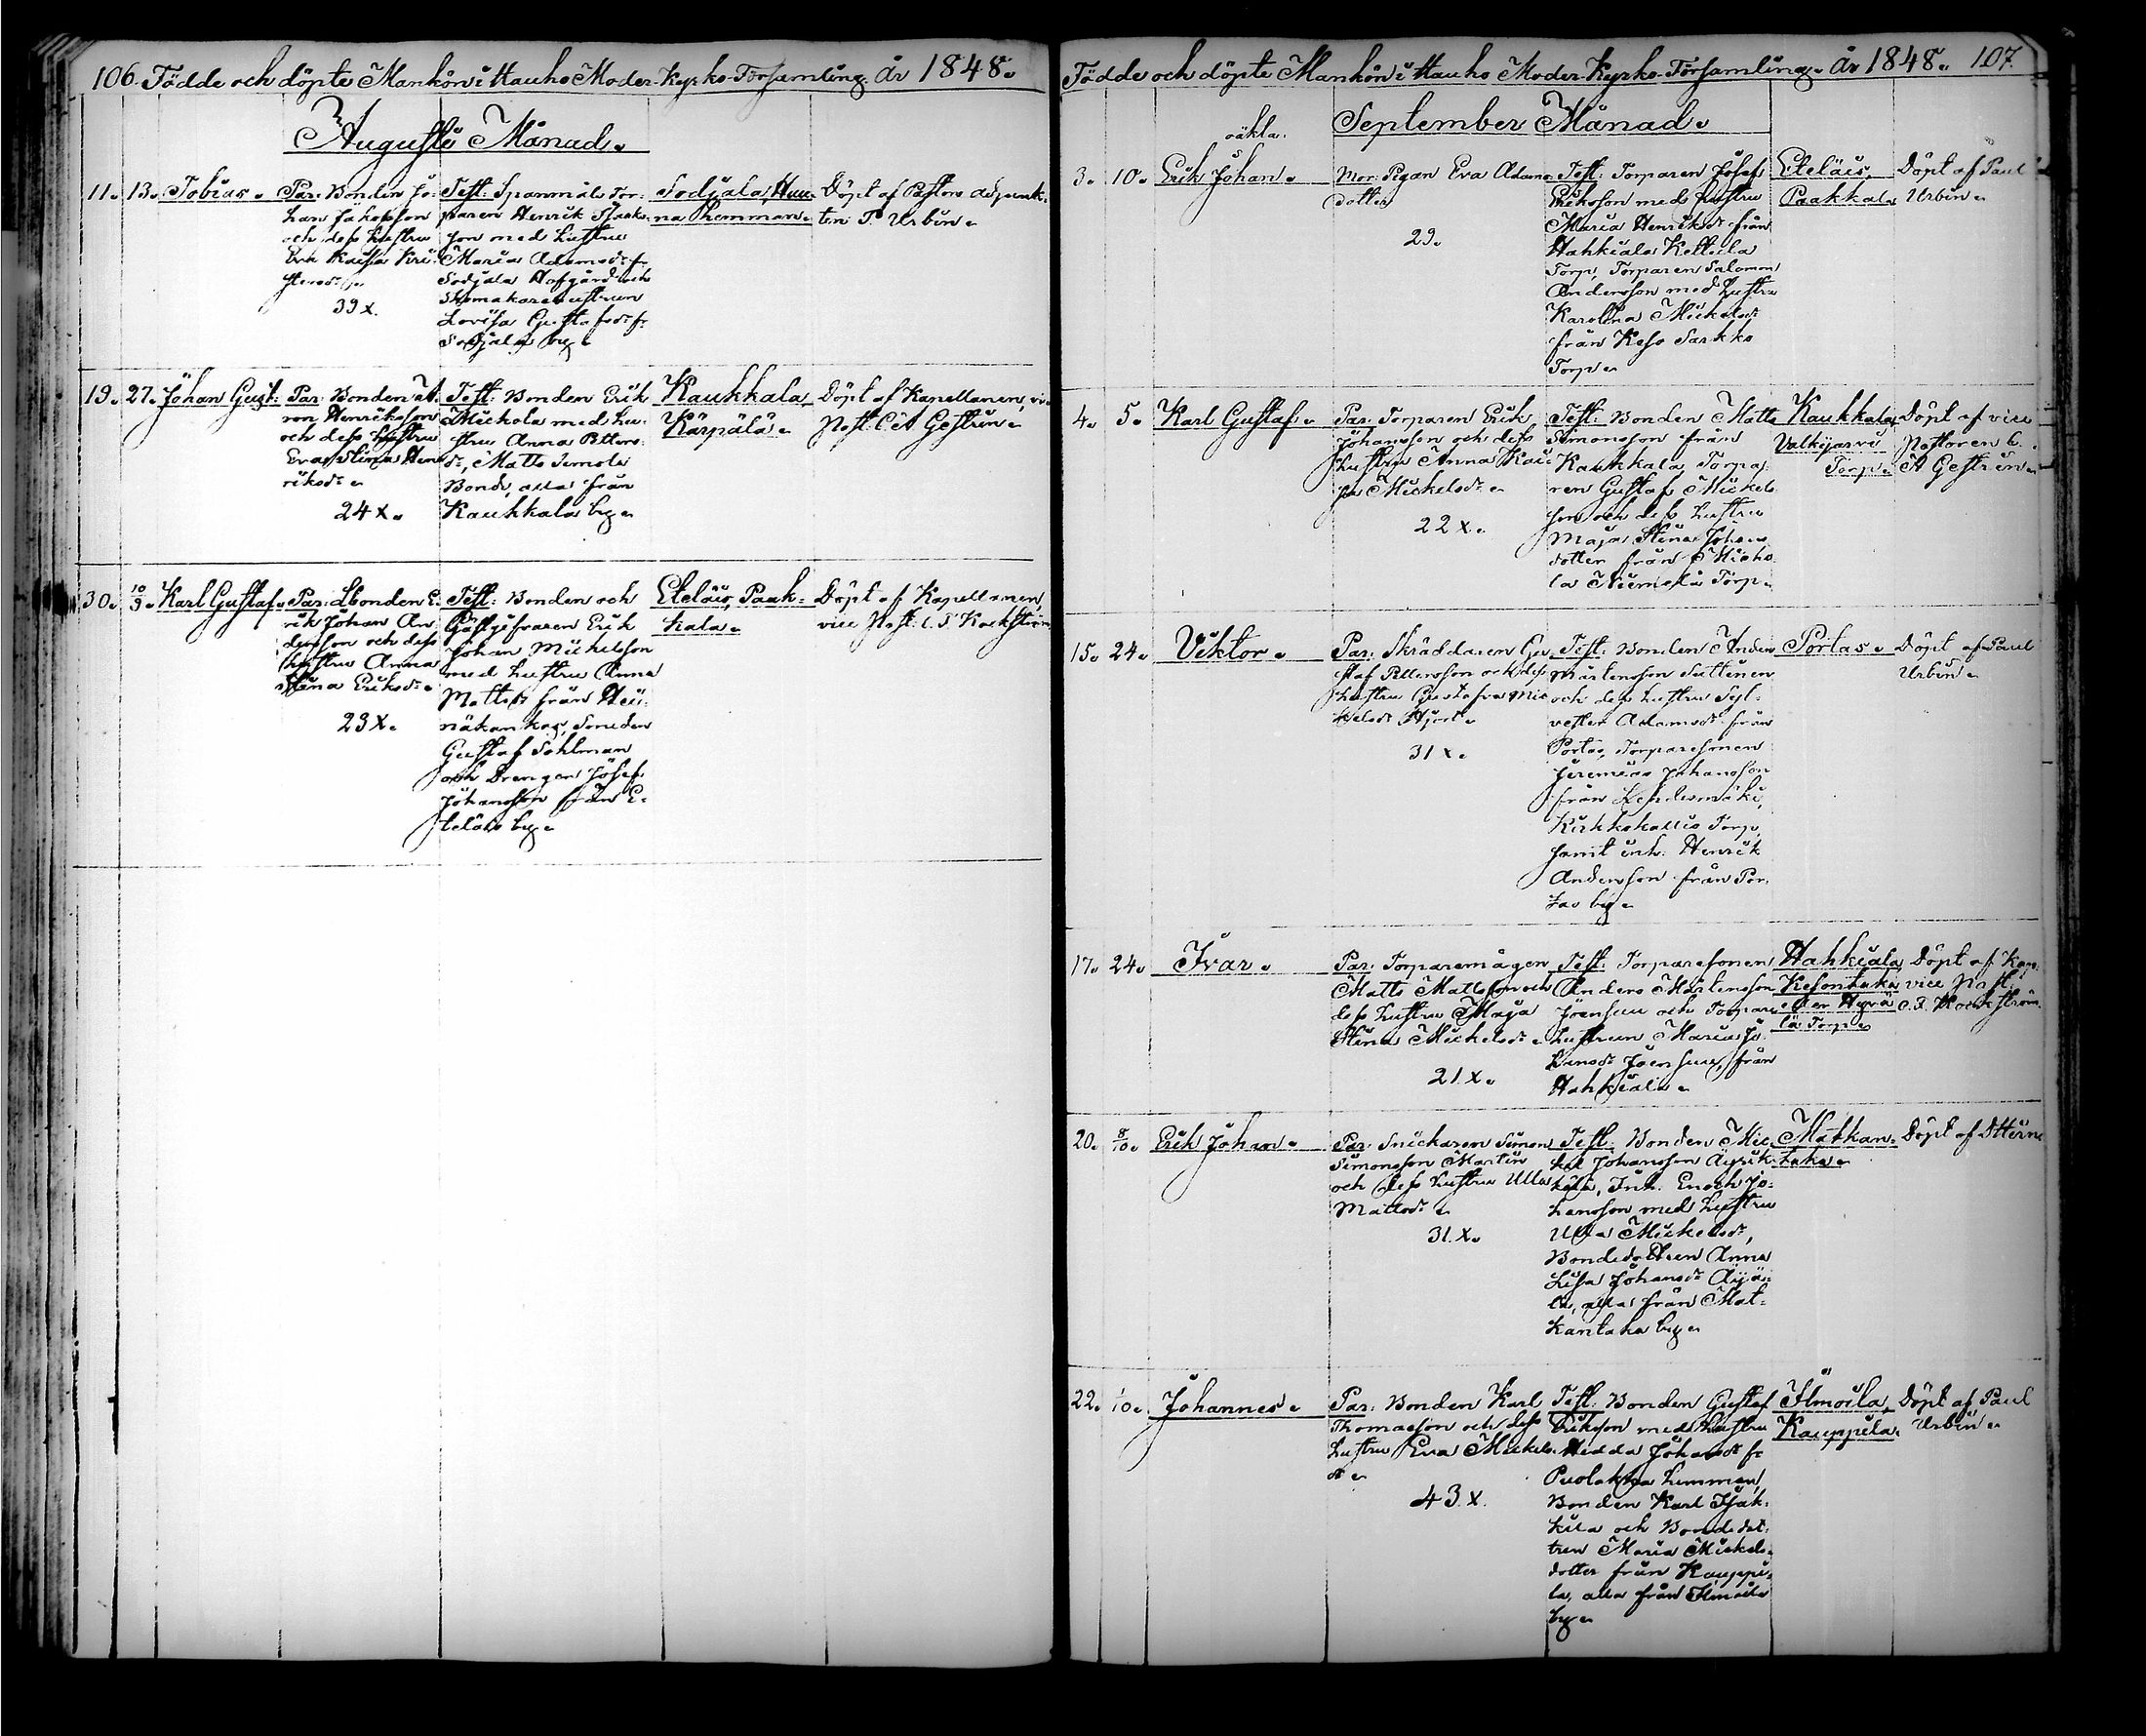 106. Födde och döpte Mankön i Hauho Moder-Kyrko-Församling. år 1848.
Augusti Månad.
11. 13. Tobias.
Par: Bonden Jo-
han Jakobsson
och dess hustru
Eva Kaisa Kri-
stersdr.
39 x.
Test: Spanmåls Tor-
paren Henrik Isaks-
son med hustru
Maria Adamsdr fr.
Sodjala Hofgård och
Skomakarehustrun
Lovisa Gustafsdr fr.
Sodjala by.
Sodjala,
na Rhemman.
Döpt af Pastors adjunk-
ten P. Urbin.
19. 27. Johan Gust:
Par: Bonden A-
ron Henriksson
och dess hustru
Eva Stina Hen-
riksdr.
24 x.
Test: Bonden Erik
Mickola med hu-
stru Anna Petters-
dr, Matts Simola
Bonde, alla från
Kaukkala by.
Kaukkala
Kärpälä.
Döpt af Kapellanen, vi-
Past. C: A Gestrin.
30. 10/9. Karl Gustaf.
Par: Lbonden E-
rik Johan An-
dersson och dess
hustru Anna
Stina Eriksdr.
23 x.
Test: Bonden och
Gästgifvaren Erik
Johan Michelsson
med hustru Anna
Mattsdr från Hei-
näkankas, Smeden
Gustaf Sohlman
och Drengen Josef
Johansson från E-
teläis by.
Eteläis, Paak-
kala.
Döpt af Kapellanen,
vice Past: C. F. Kockström
Födde och döpte Mankön i Hauho Moder-Kyrko-Församling. år 1848. 107.
September Månad.
oäkta.
3. 10. Erik Johan.
Mor: Pigan Eva Adams-
dotter
29.
Test: Torparen Josef
Eriksson med hustru
Maria Henriksdr från
Hahkiala Kettula
Torp, Torparen Salomon
Andersson med hustru
Karolina Mickelsdr
från Keso Sarkko
Torp.
Eteläis,
Paakkala.
Döpt af Paul
Urbin.
4. 5. Karl Gustaf.
Par: Torparen Erik
Johansson och dess
hustru Anna Kai-
sa Mickelsdr.
22 x.
Test: Bonden Matts
Simonsson från
Kaukkala, Torpa-
ren Gustaf Mickels-
son och dess hustru
Maja Stina Johans-
dotter från Micko-
la Niemelä Torp.
Kaukkala,
Valkijarvi
Torp.
Döpt af vice
Pastoren C.
A Gestrin.
15. 24. Viktor.
Par: Skräddaren Gu-
staf Pettersson och dess
hustru Gustafva Mic-
kelsdr Hjort.
31 x.
Test: Bonden Anders
Mårtensson Suttinen
och dess hustru Syl-
vester Adamsdr från
Portas, Torparesonen
Jeremias Johansson
från Lehdesmäki,
Kirkkokallio Torp,
samt inh. Henrik
Andersson från Por-
tas by.
Portas.
Döpt af Paul
Urbin.
17. 24. Ivar.
Par: Torparemågen
Matts Mattsson och
dess hustru Maja
Stina Mickelsdr.
21. x.
Test: Torparesonen
Anders Mårtensson
Joensuu och Torpare
hustrun Maria Jo-
hansdr Joensuu, från
Hahkiala.
Hahkiala,
Kesontaka
eller
lä Torp.
Döpt af Kap:
vice Past:
C. F. Kockström.
20. 8/10. Erik Johan.
Par: Snickaren Simon
Simonsson Martin
och dess hustru Ulla
Mattsdr.
31. x.
Test: Bonden Mic-
kel Johansson Äyrik-
kälä, Inh. Enoch Jo-
hansson med hustru
Ulla Mickelsdr,
Bondedottren Anna
Lisa Johansdr
la, alla från Mat-
kantaka by.
Matkan-
taka.
Döpt af
22. 1/10. Johannes.
Par: Bonden Karl
Thomasson och dess
hustru Eva Mickels-
dr.
43 x.
Test: Bonden Gustaf
Eriksson med hustru
Hedda Johansdr fr.
Puolakka hemman,
Bonden Karl Isak-
kila och Bondedot-
tren Maria Mickels-
dotter från Kauppi-
la, alla från Ilmoila
by.
Ilmoila,
Kauppila.
Döpt af Paul
Urbin.